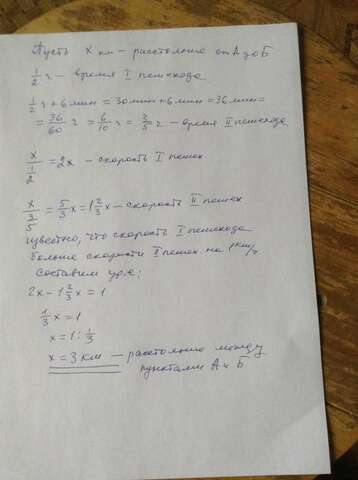 Пусть x км – расстояние от А до Б
1/2 ч – время I пешехода
1/2 ч + 6 мин = 30 мин + 6 мин = 36 мин =
= 36/60 ч = 6/10 ч = 3/5 ч – время II пешехода
x / (1/2) = 2x – скорость I пешех
x / (3/5) = 5/3 x = 1 2/3 x – скорость II пешех
известно, что скорость I пешехода
больше скорости II пешех на 1 км/ч
Составим ур-е:
2x - 1 2/3 x = 1
1/3 x = 1
x = 1 : 1/3
x = 3 км – расстояние между
пунктами А и Б